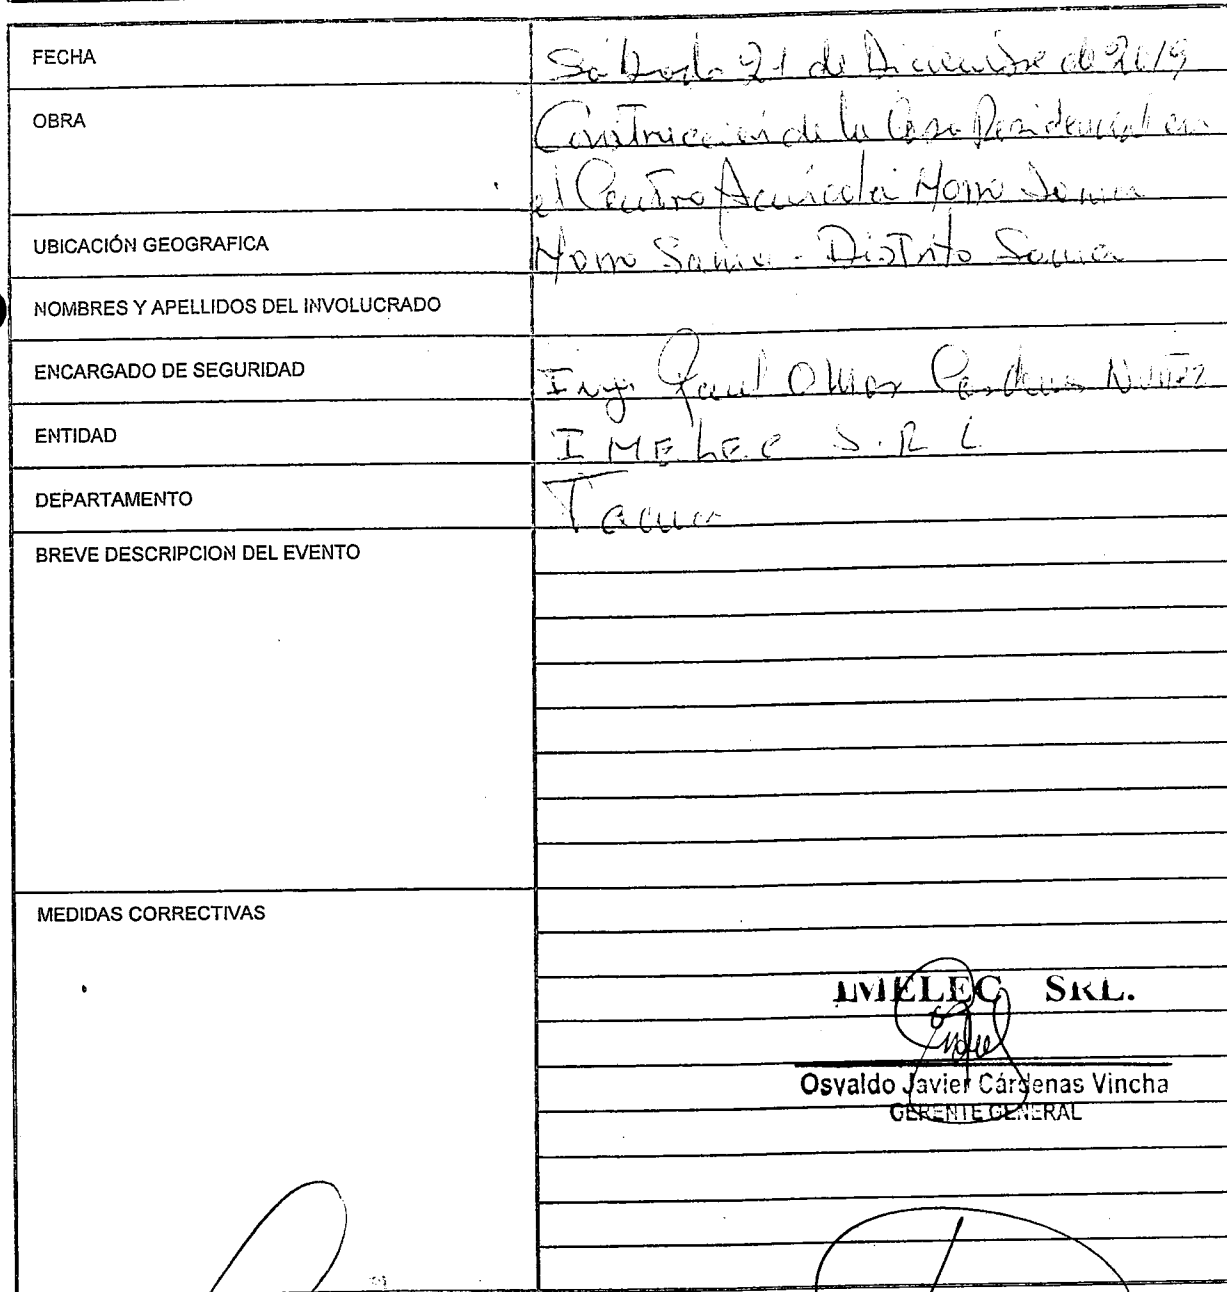 FECHA
Sábado 21 de Diciembre de 2019
OBRA
Construcción de la Casa Residencial en
el Centro Acuícola Morro Sama
UBICACIÓN GEOGRAFICA
Morro Sama - Distrito Sama
NOMBRES Y APELLIDOS DEL INVOLUCRADO
ENCARGADO DE SEGURIDAD
Ing. Omar Cardenas Nuñez
ENTIDAD
IMELEC S.R.L
DEPARTAMENTO
Tacna
BREVE DESCRIPCION DEL EVENTO
MEDIDAS CORRECTIVAS
IMELEC SRL.
Osvaldo Javier Cárdenas Vincha
GERENTE GENERAL